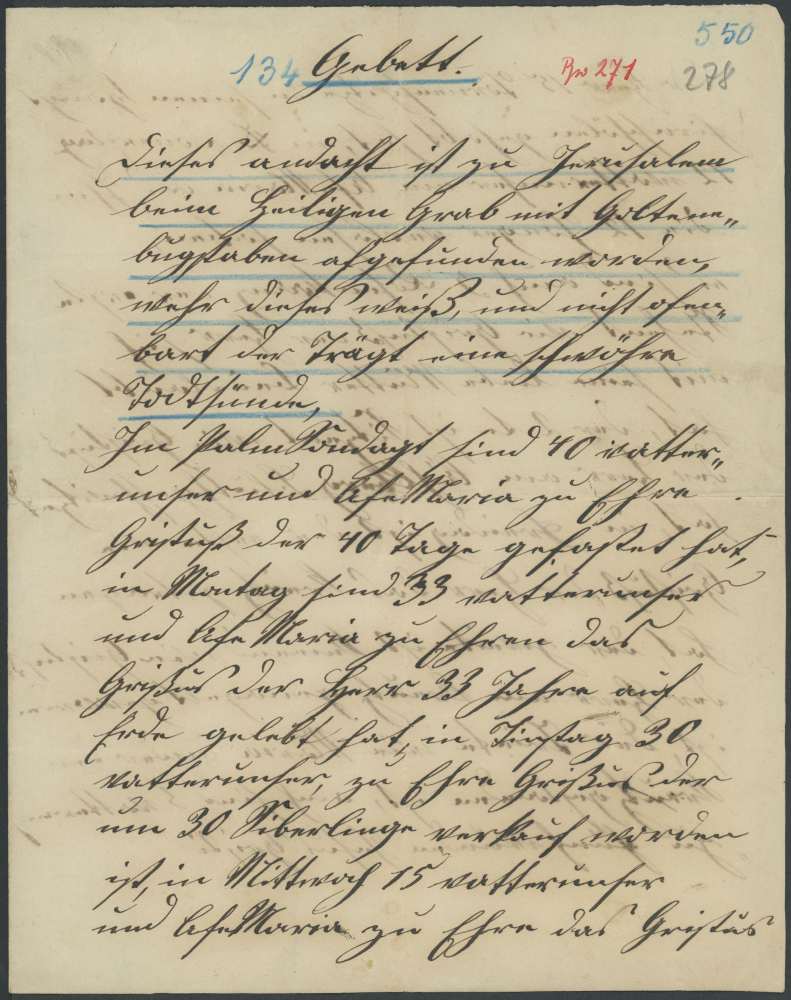 550
134 Gebett. Bw 271
278
Dieses andacht ist zu Jerusalem
beim Heiligen Grab mit Goltene„
bugstaben afgefunden worden,
wehr dieses weiß, und nicht ofen„
bart der Trägt eine schwöhre
Todtsünde,
Im PalmSondagt sind 40 vatter„
unser und AfeMaria zu Ehre
Gristuß der 40 Tage gefastet hat,
in Montag sind 33 vatterunser
und Afe Maria zu Ehren das
Grisßus der Herr 33 Jahre auf
Erde gelebt hat, in Dinstag 30
vatterunser, zu Ehre Grisßus der
um 30 Siberlinge verkauf worden
ist, in Mittwoch 15 vatterunser
und AfeMaria zu Ehre das Gristus